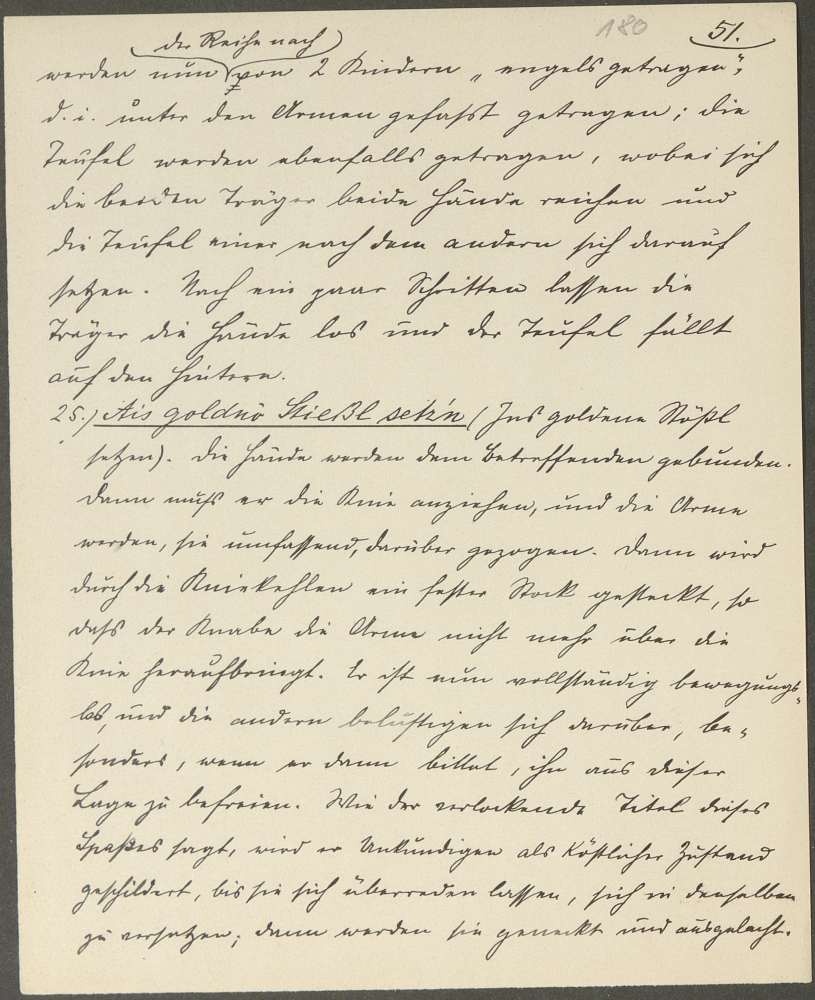 180
51.
der Reihe nach
werden nun von 2 Kindern „engelsgetragen“,
d. i. unter den Armen gefaßt getragen; die
Teufel werden ebenfalls getragen, wobei sich
die beiden Träger beide Hände reichen und
die Teufel einer nach dem andern sich darauf
setzen. Nach ein paar Schritten lassen die
Träger die Hände los und der Teufel fällt
auf den Hintern.
25.) Ais goldnö Stießl setz'n (Ins goldene Stößl
setzen). Die Hände werden dem Betreffenden gebunden.
Dann muß er die Knie anziehen, und die Arme
werden, sie umfassend, darüber gezogen. Dann wird
durch die Kniekehlen ein fester Stock gesteckt, so
daß der Knabe die Arme nicht mehr über die
Knie heraufbringt. Er ist nun vollständig bewegungs-
los, und die andern belustigen sich darüber, be-
sonders, wenn er dann bittet, ihn aus dieser
Lage zu befreien. Wie der verlockende Titel dieses
Spaßes sagt, wird er Unkundigen als köstlicher Zustand
geschildert, bis sie sich überreden lassen, sich in denselben
zu versetzen; dann werden sie geneckt und ausgelacht.